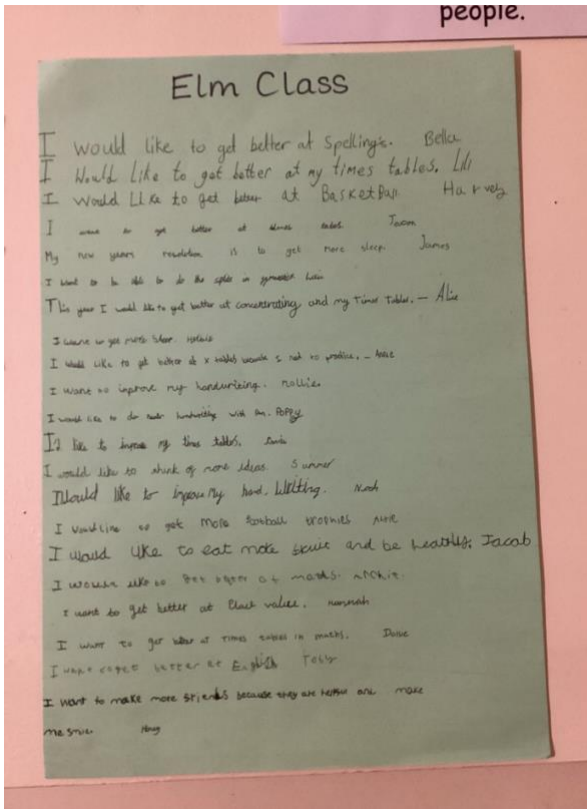 people.
Elm Class
I would like to get better at Spelling's. Bella
I Would Like to get better at my times tables. Lili
I Would LIke to get better at BasketBall Harvey
I want to get better at times tables.
My new years resolution is to get more sleep. James
I want to be able to do the splits in gymnastics
This year I would like to get better at concentrating, and my Times Tables. – Alice
I want to get more sleep
I would like to get better at x tables
I want to improve my handwriting. Mollie.
I would like to do neater handwriting with Poppy
I'd like to improve my times tables.
I would like to think of more ideas. Summer
I Would like to improve My hand. Writting. Noah
I Would like to get more football trophies
I would like to eat more fruit and be healthy. Jacob
I would like to get better at maths. Archie.
I want to get better at Place value. Hannah
I want to get better at Times tables in maths.
I want to get better at English Toby
I want to make more friends because they are make
me smile.